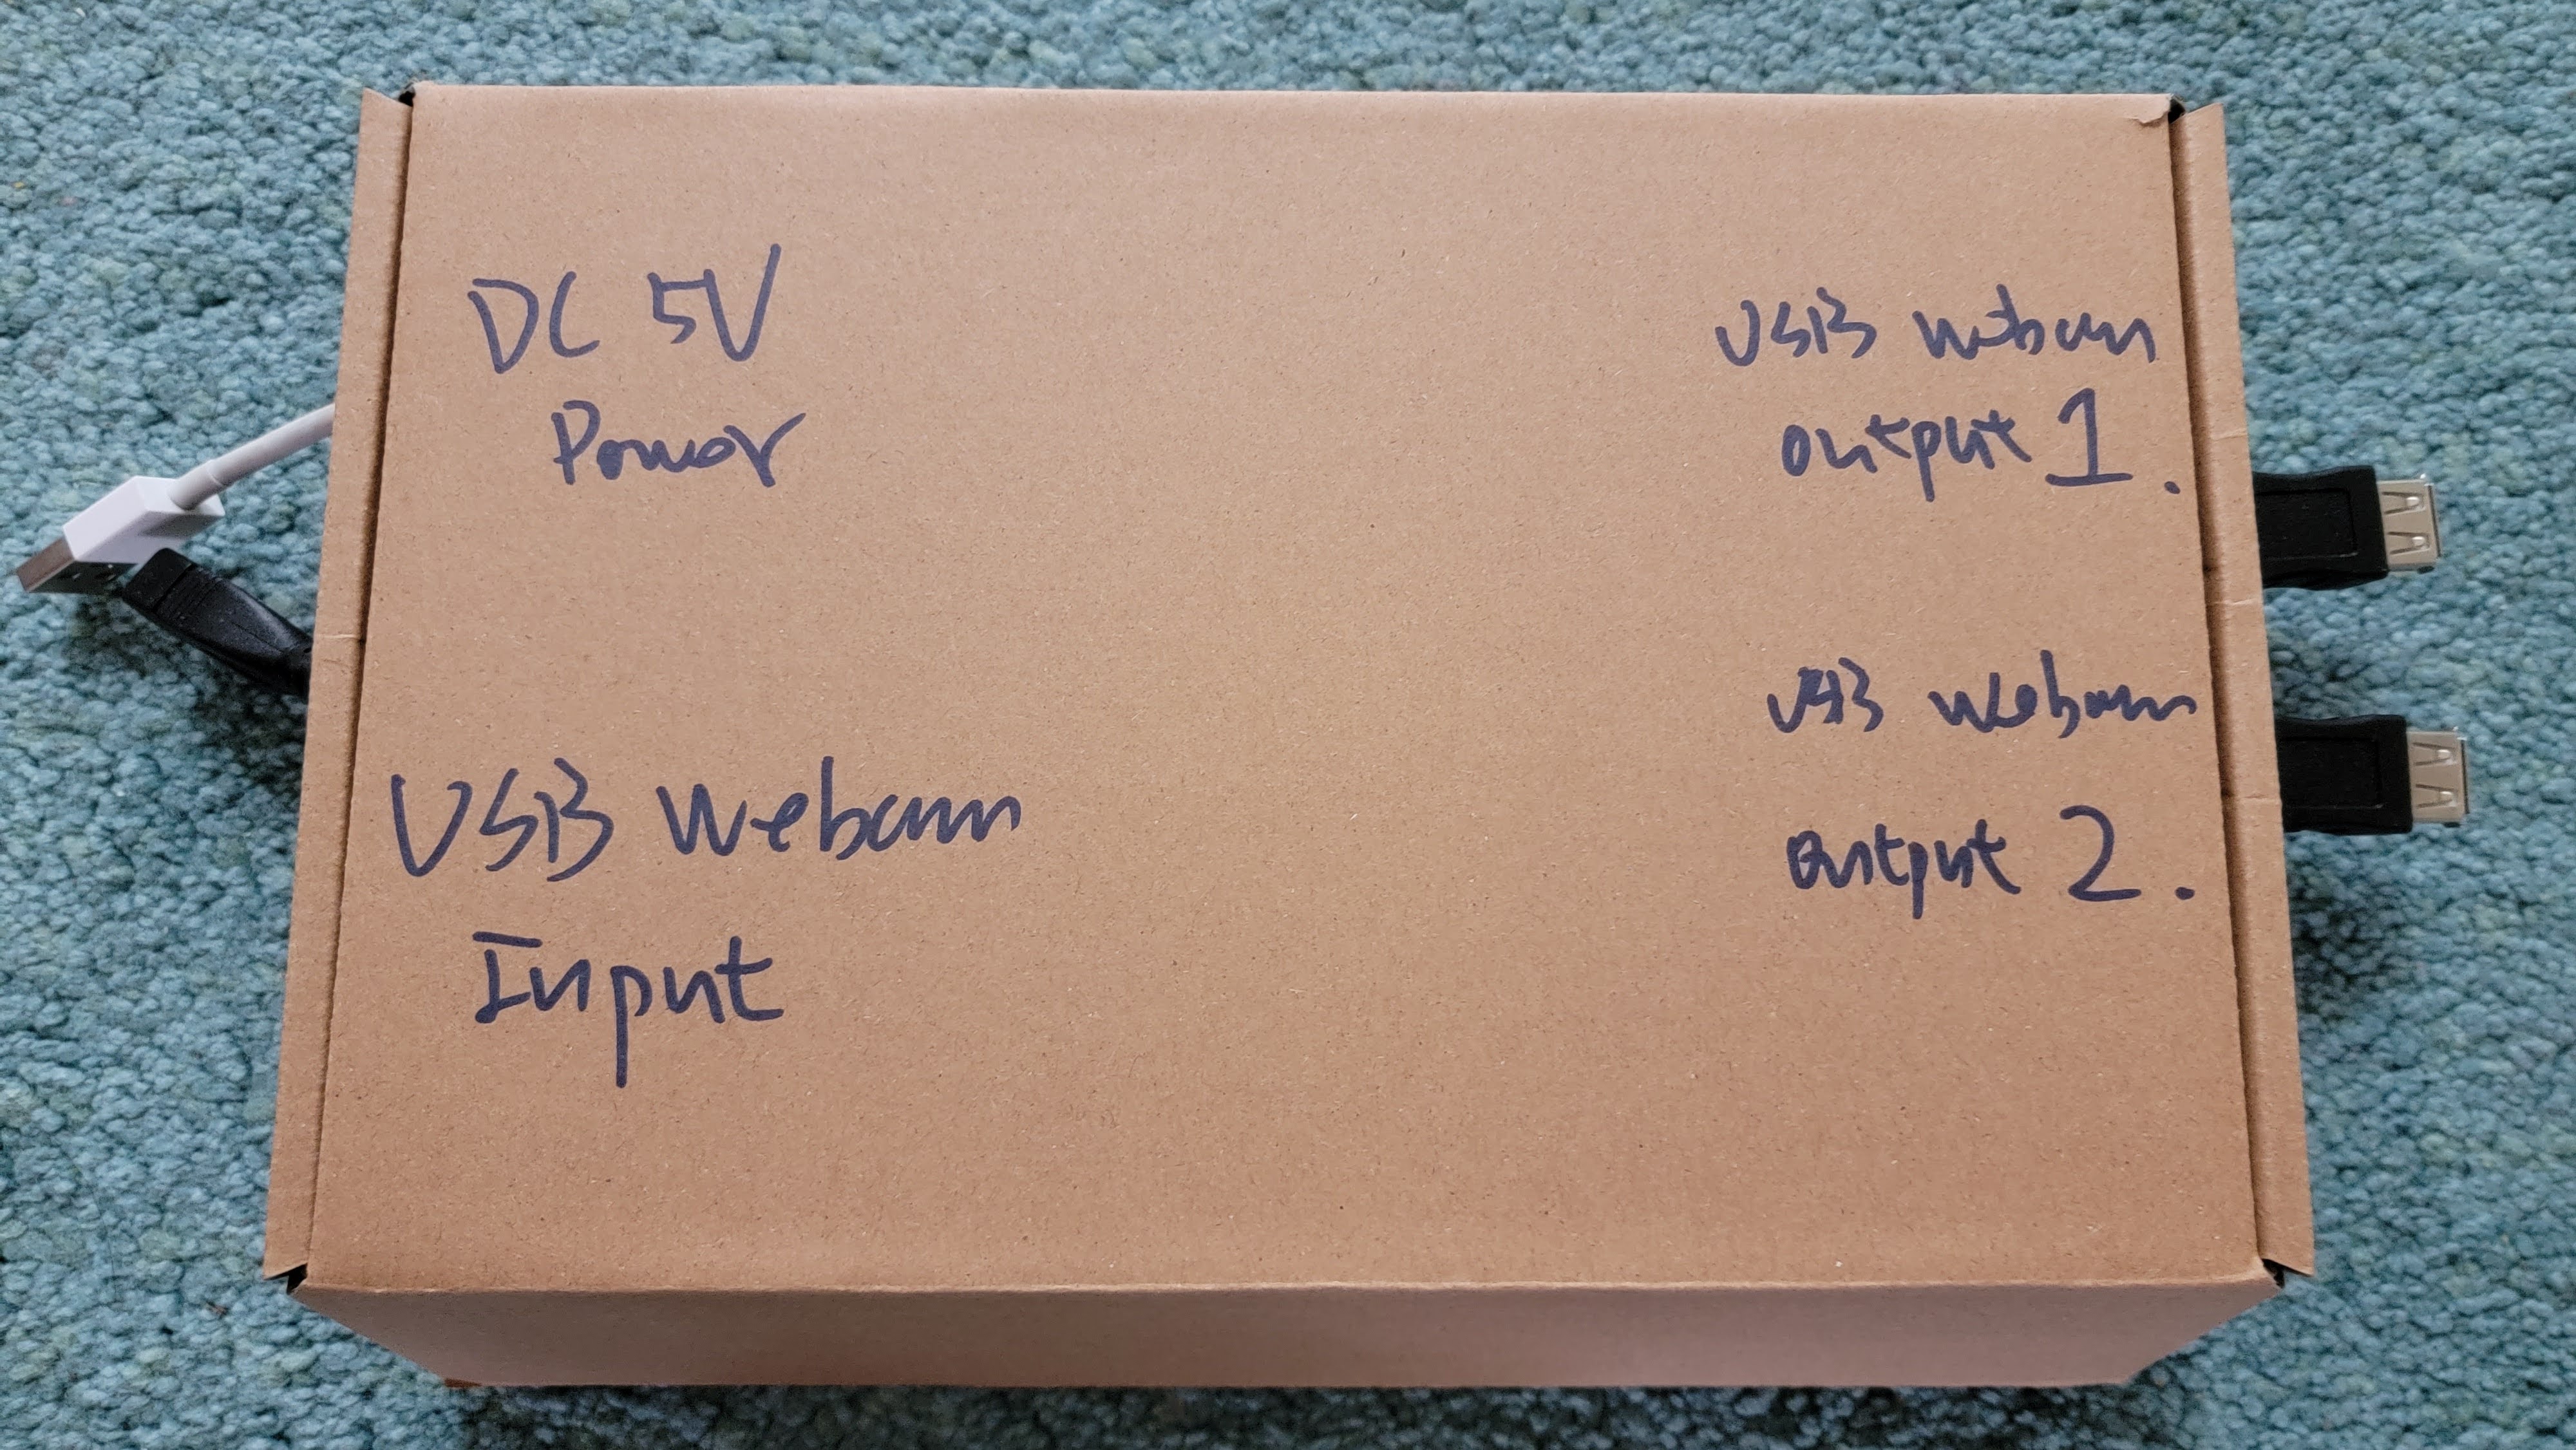 DC 5V
Power
USB Webcam
Input
USB webcam
output 1.
USB webcam
output 2.